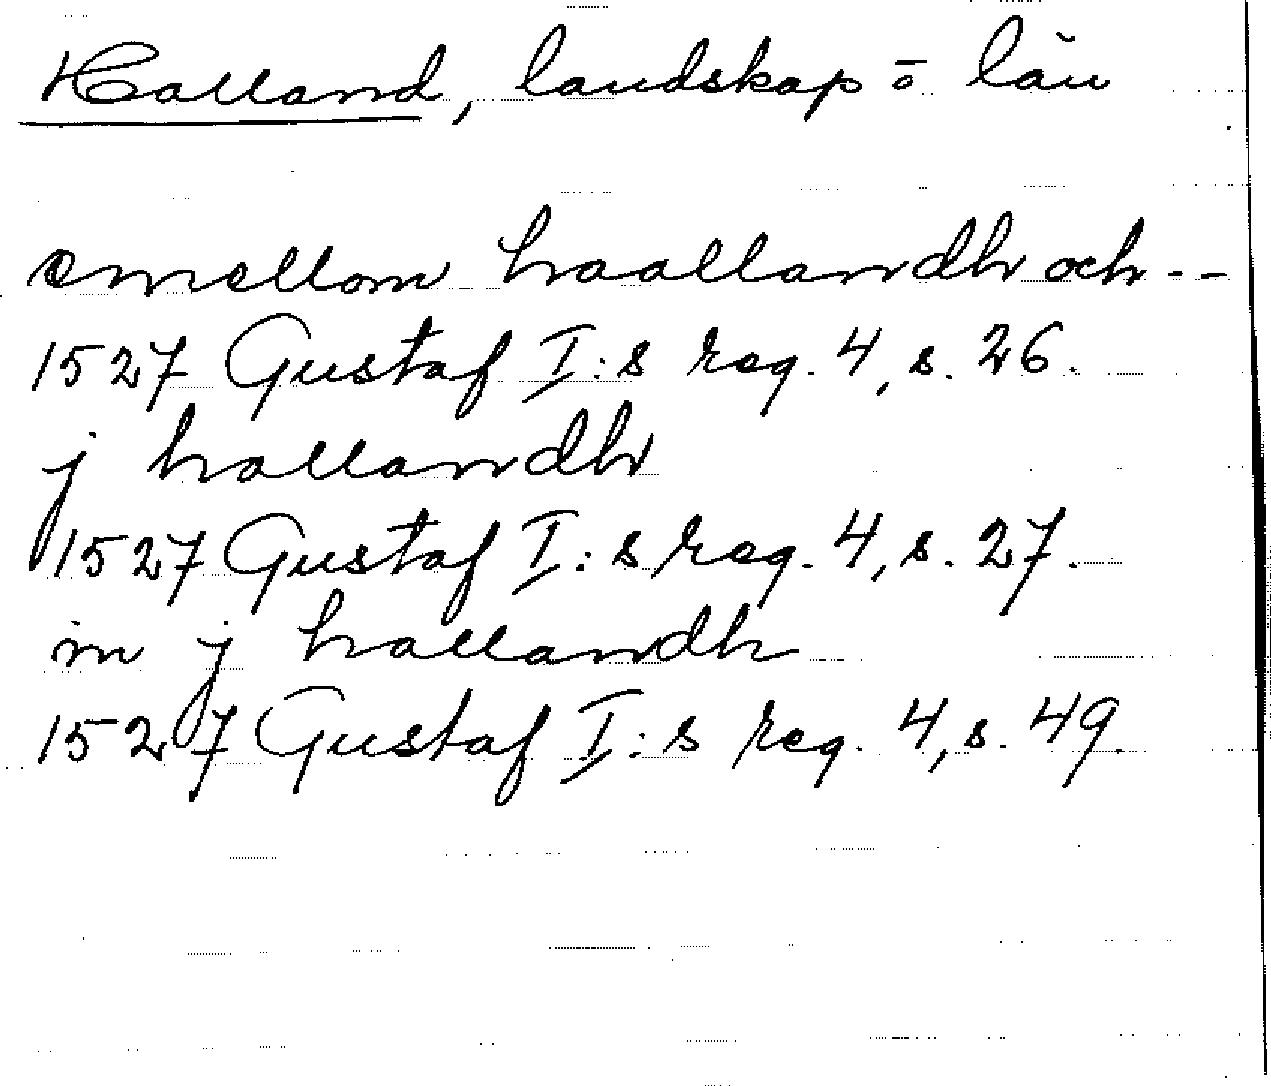 Halland, landskap o län
emellom haallandh och --
1527 Gustaf I:s reg. 4, s. 26.
j hallandh
1527 Gustaf I:s reg. 4, s. 27.
in j hallandh
1527 Gustaf I:s reg. 4, s. 49.